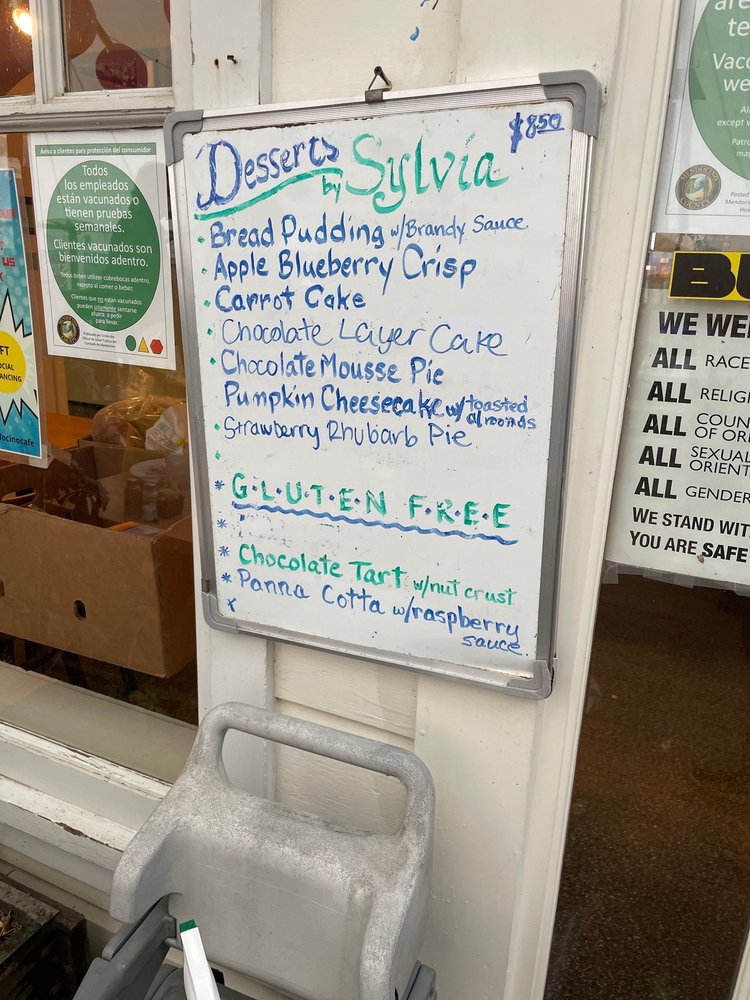 Desserts by Sylvia $8.50
• Bread Pudding w/Brandy Sauce
• Apple Blueberry Crisp
• Carrot Cake
• Chocolate Layer Cake
• Chocolate Mousse Pie
Pumpkin Cheesecake w/toasted
almonds
• Strawberry Rhubarb Pie
•
* G•L•U•T•E•N F•R•E•E
*
* Chocolate Tart w/nut crust
* Panna Cotta w/raspberry
sauce
*
Aviso a clientes para protección del consumidor
Todos
los empleados
están vacunados o
tienen pruebas
semanales.
Clientes vacunados son
bienvenidos adentro.
Todos deben utilizar cubrebocas adentro,
excepto al comer o beber.
Clientes que no están vacunados
pueden solamente sentarse
afuera o pedir
para llevar.
FT
OCIAL
ANCING
docinocafe
are
te
Vacc
we
Al
except w
Patro
may
MENDOCINO
COUNTY
Posted
Mendocin
He
BU
WE WEL
ALL RACE
ALL RELIGI
ALL COUN
OF OR
ALL SEXUAL
ORIENT
ALL GENDER
WE STAND WIT
YOU ARE SAFE